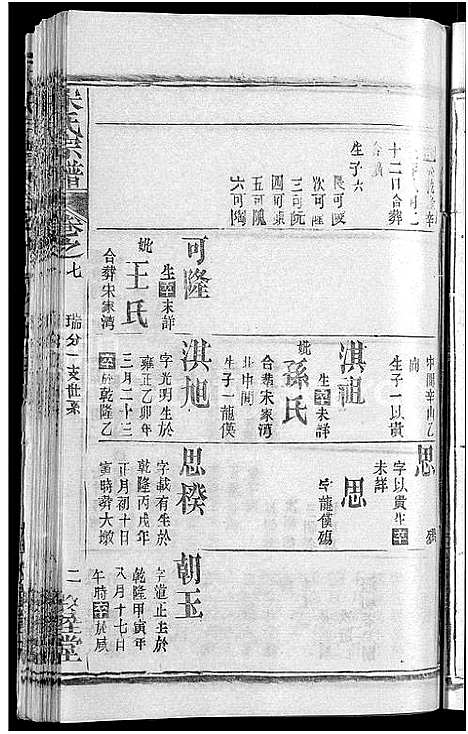 十二日合葬
生子六
長可陵
次可隆
三可阮
四可東
五可隗
六可陶
中開辛山乙
向
生子一以貴
淇祖
生卒未詳
妣孫氏
合葬宋家湾
北中開
生子一龍僕
可隆
生卒未詳
妣王氏
合葬宋家湾
淇旭
字光明生於
雍正乙卯年
三月二十三
卒於乾隆乙
思
字以貴生卒
未詳
思
字龍僕殤
思稑
字載有生於
乾隆丙戌年
正月初十日
寅時葬大墩
朝玉
字道正生於
乾隆甲寅年
八月十七日
午時卒於咸
宋氏宗譜
卷之七
瑞分一支世系
二
堂